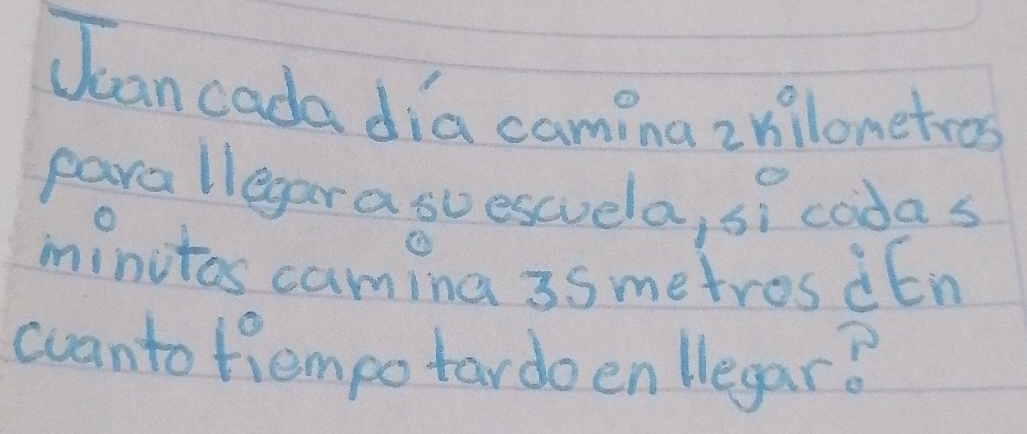 Juan cada día camina 2 kilometros
para llegar a su escuela, si cada 5
minutos camina 35 metros ¿En
cuanto tiempo tardo en llegar?